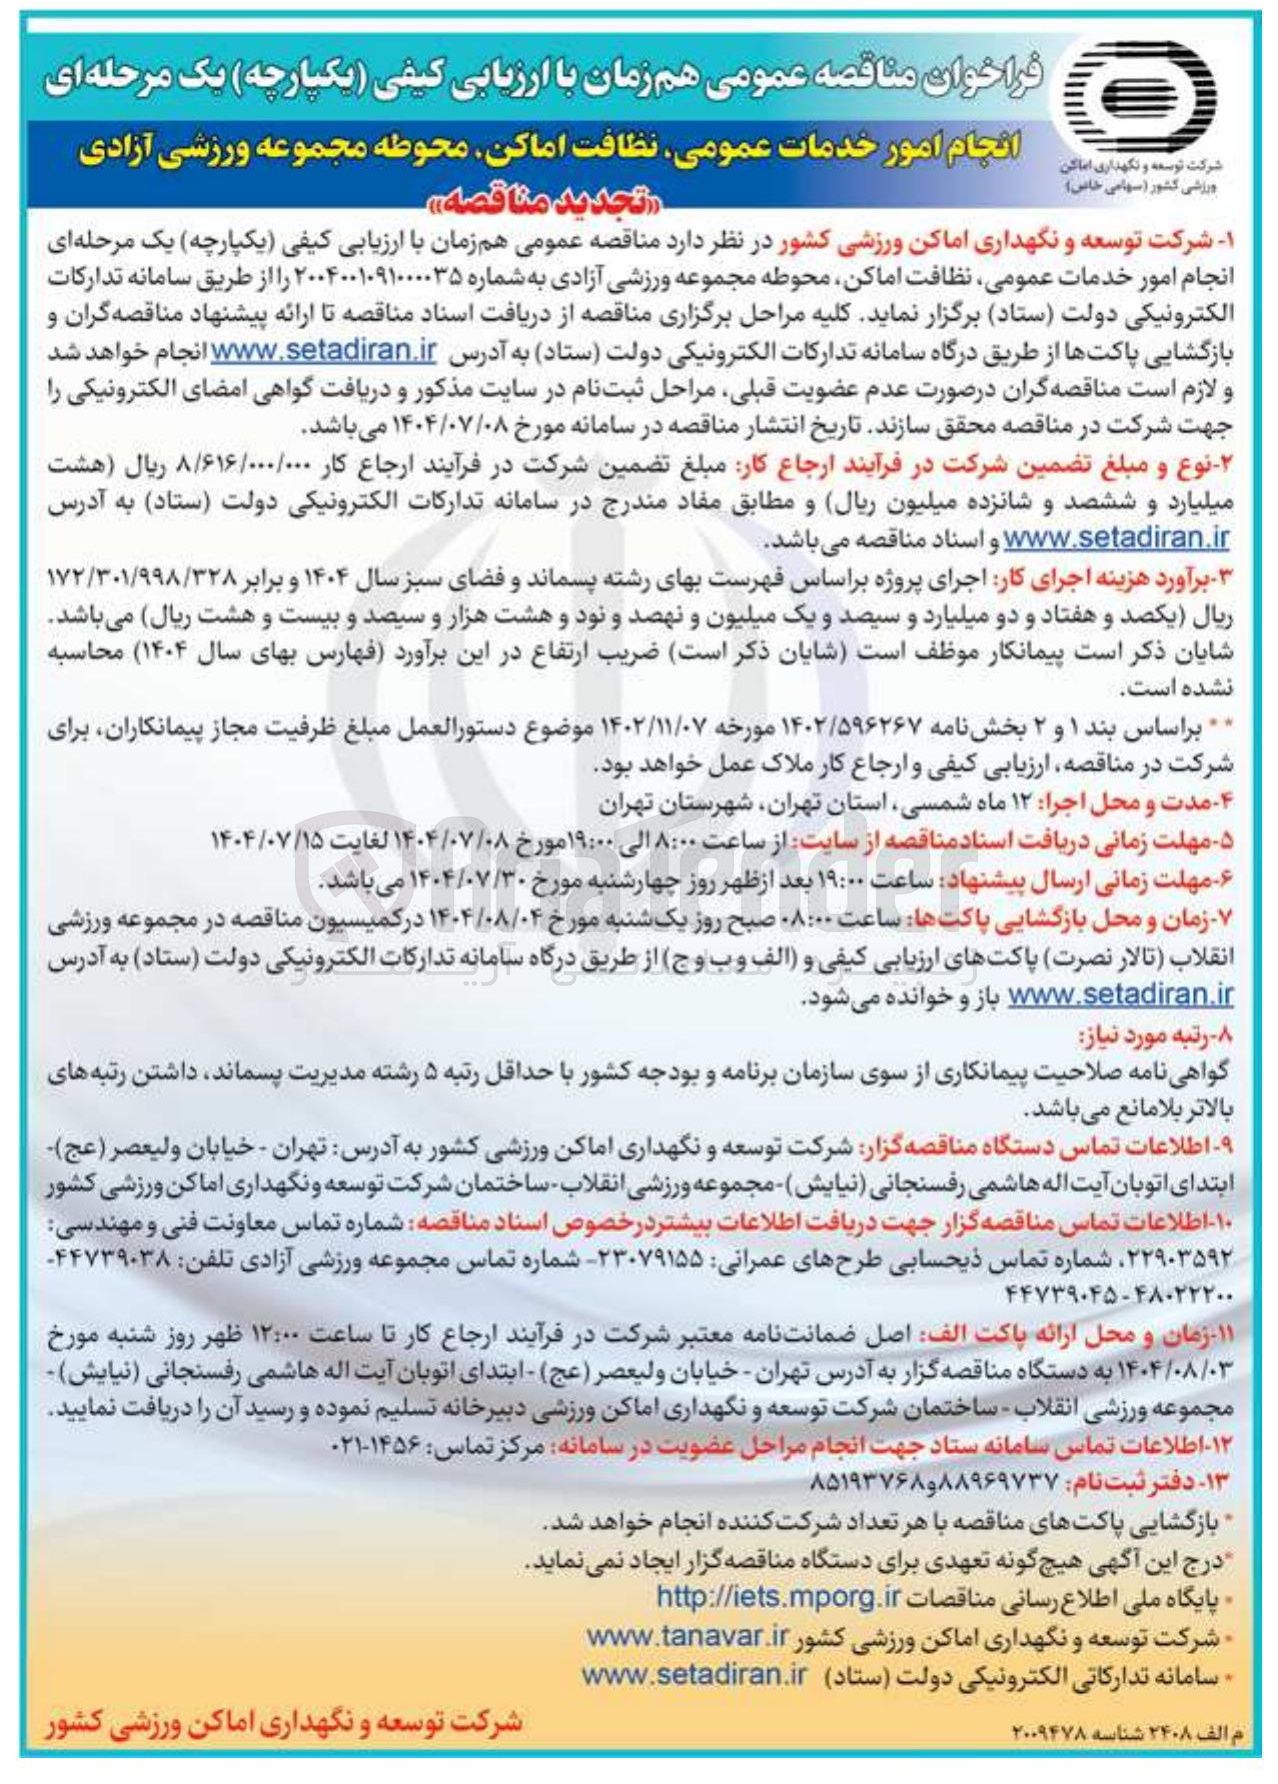 شرکت توسعه و نگهداری اماکن
ورزشی کشور (سهامی خاص)
فراخوان مناقصه عمومی هم‌زمان با ارزیابی کیفی (یکپارچه) یک مرحله‌ای
انجام امور خدمات عمومی، نظافت اماکن، محوطه مجموعه ورزشی آزادی
«تجدید مناقصه»
۱- شرکت توسعه و نگهداری اماکن ورزشی کشور در نظر دارد مناقصه عمومی هم‌زمان با ارزیابی کیفی (یکپارچه) یک مرحله‌ای
انجام امور خدمات عمومی، نظافت اماکن، محوطه مجموعه ورزشی آزادی به‌شماره ۲۰۰۴۰۰۱۰۹۱۰۰۰۰۳۵ را از طریق سامانه تدارکات
الکترونیکی دولت (ستاد) برگزار نماید. کلیه مراحل برگزاری مناقصه از دریافت اسناد مناقصه تا ارائه پیشنهاد مناقصه‌گران و
بازگشایی پاکت‌ها از طریق درگاه سامانه تدارکات الکترونیکی دولت (ستاد) به آدرس www.setadiran.ir انجام خواهد شد
و لازم است مناقصه‌گران درصورت عدم عضویت قبلی، مراحل ثبت‌نام در سایت مذکور و دریافت گواهی امضای الکترونیکی را
جهت شرکت در مناقصه محقق سازند. تاریخ انتشار مناقصه در سامانه مورخ ۱۴۰۴/۰۷/۰۸ می‌باشد.
۲-نوع و مبلغ تضمین شرکت در فرآیند ارجاع کار: مبلغ تضمین شرکت در فرآیند ارجاع کار ۸/۶۱۶/۰۰۰/۰۰۰ ریال (هشت
میلیارد و ششصد و شانزده میلیون ریال) و مطابق مفاد مندرج در سامانه تدارکات الکترونیکی دولت (ستاد) به آدرس
www.setadiran.ir و اسناد مناقصه می‌باشد.
۳-برآورد هزینه اجرای کار: اجرای پروژه براساس فهرست بهای رشته پسماند و فضای سبز سال ۱۴۰۴ و برابر ۱۷۲/۳۰۱/۹۹۸/۳۲۸
ریال (یکصد و هفتاد و دو میلیارد و سیصد و یک میلیون و نهصد و نود و هشت هزار و سیصد و بیست و هشت ریال) می‌باشد.
شایان ذکر است پیمانکار موظف است (شایان ذکر است) ضریب ارتفاع در این برآورد (فهارس بهای سال ۱۴۰۴) محاسبه
نشده است.
** براساس بند ۱ و ۲ بخش‌نامه ۱۴۰۲/۵۹۶۲۶۷ مورخه ۱۴۰۲/۱۱/۰۷ موضوع دستورالعمل مبلغ ظرفیت مجاز پیمانکاران، برای
شرکت در مناقصه، ارزیابی کیفی و ارجاع کار ملاک عمل خواهد بود.
۴-مدت و محل اجرا: ۱۲ ماه شمسی، استان تهران، شهرستان تهران
۵-مهلت زمانی دریافت اسناد مناقصه از سایت: از ساعت ۸:۰۰ الی ۱۹:۰۰ مورخ ۱۴۰۴/۰۷/۰۸ لغایت ۱۴۰۴/۰۷/۱۵
۶-مهلت زمانی ارسال پیشنهاد: ساعت ۱۹:۰۰ بعد ازظهر روز چهارشنبه مورخ ۱۴۰۴/۰۷/۳۰ می‌باشد.
۷-زمان و محل بازگشایی پاکت‌ها: ساعت ۰۸:۰۰ صبح روز یک‌شنبه مورخ ۱۴۰۴/۰۸/۰۴ درکمیسیون مناقصه در مجموعه ورزشی
انقلاب (تالار نصرت) پاکت‌های ارزیابی کیفی و (الف و ب و ج) از طریق درگاه سامانه تدارکات الکترونیکی دولت (ستاد) به آدرس
www.setadiran.ir باز و خوانده می‌شود.
۸-رتبه مورد نیاز:
گواهی‌نامه صلاحیت پیمانکاری از سوی سازمان برنامه و بودجه کشور با حداقل رتبه ۵ رشته مدیریت پسماند، داشتن رتبه‌های
بالاتر بلامانع می‌باشد.
۹- اطلاعات تماس دستگاه مناقصه‌گزار: شرکت توسعه و نگهداری اماکن ورزشی کشور به آدرس: تهران - خیابان ولیعصر (عج)-
ابتدای اتوبان آیت اله هاشمی رفسنجانی (نیایش)-مجموعه ورزشی انقلاب-ساختمان شرکت توسعه ونگهداری اماکن ورزشی کشور
۱۰-اطلاعات تماس مناقصه‌گزار جهت دریافت اطلاعات بیشتردرخصوص اسناد مناقصه: شماره تماس معاونت فنی و مهندسی:
۲۲۹۰۳۵۹۲، شماره تماس ذیحسابی طرح‌های عمرانی: ۲۳۰۷۹۱۵۵- شماره تماس مجموعه ورزشی آزادی تلفن: ۴۴۷۳۹۰۳۸-
۴۸۰۲۲۲۰۰-۴۴۷۳۹۰۴۵
۱۱-زمان و محل ارائه پاکت الف: اصل ضمانت‌نامه معتبر شرکت در فرآیند ارجاع کار تا ساعت ۱۲:۰۰ ظهر روز شنبه مورخ
۱۴۰۴/۰۸/۰۳ به دستگاه مناقصه‌گزار به آدرس تهران - خیابان ولیعصر (عج) - ابتدای اتوبان آیت اله هاشمی رفسنجانی (نیایش)-
مجموعه ورزشی انقلاب - ساختمان شرکت توسعه و نگهداری اماکن ورزشی دبیرخانه تسلیم نموده و رسید آن را دریافت نمایید.
۱۲-اطلاعات تماس سامانه ستاد جهت انجام مراحل عضویت در سامانه: مرکز تماس: ۱۴۵۶-۰۲۱
۱۳- دفتر ثبت‌نام: ۸۸۹۶۹۷۳۷و۸۵۱۹۳۷۶۸
* بازگشایی پاکت‌های مناقصه با هر تعداد شرکت‌کننده انجام خواهد شد.
*درج این آگهی هیچ‌گونه تعهدی برای دستگاه مناقصه‌گزار ایجاد نمی‌نماید.
* پایگاه ملی اطلاع‌رسانی مناقصات http://iets.mporg.ir
* شرکت توسعه و نگهداری اماکن ورزشی کشور www.tanavar.ir
* سامانه تدارکاتی الکترونیکی دولت (ستاد) www.setadiran.ir
شرکت توسعه و نگهداری اماکن ورزشی کشور
م الف ۲۴۰۸ شناسه ۲۰۰۹۴۷۸